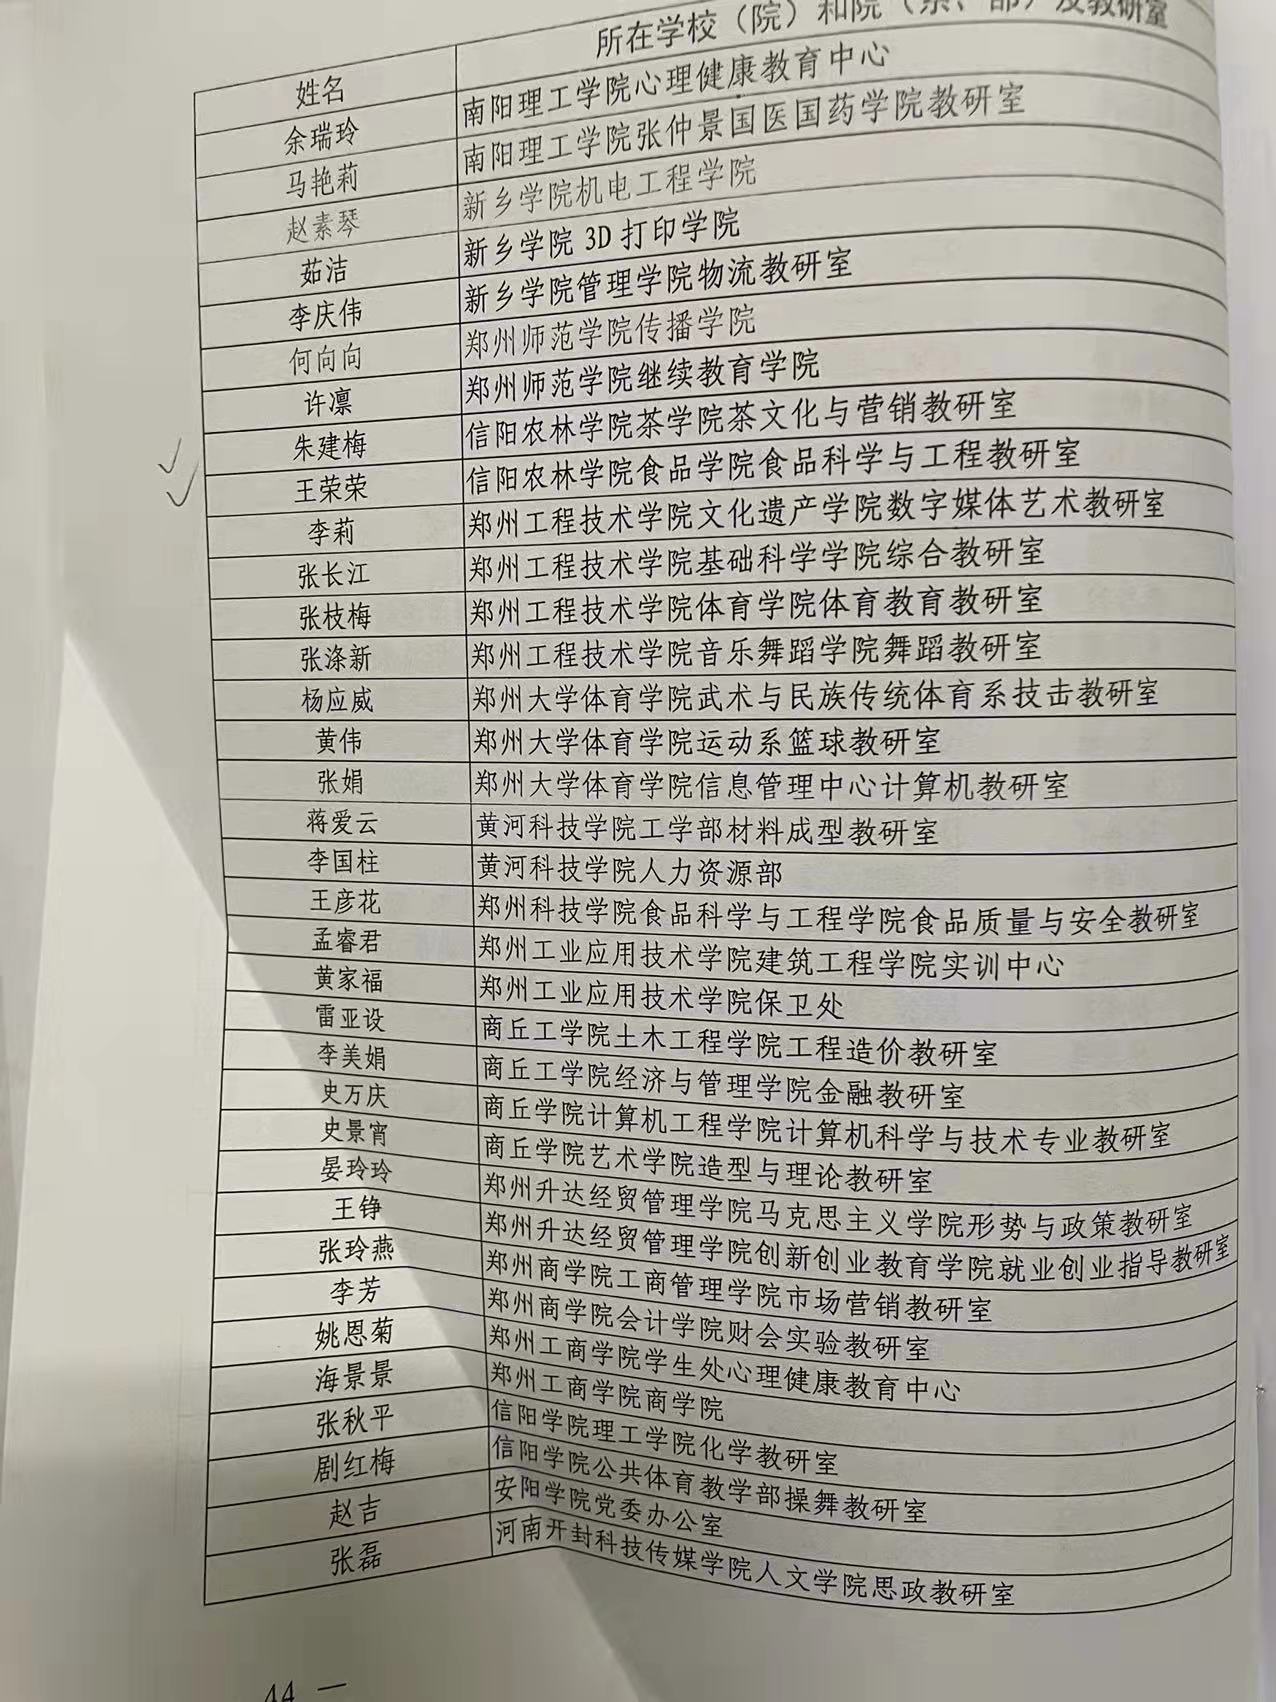 姓名 所在学校（院）和院（系、部）及教研室
余瑞玲 南阳理工学院心理健康教育中心
马艳莉 南阳理工学院张仲景国医国药学院教研室
赵素琴 新乡学院机电工程学院
茹洁 新乡学院 3D 打印学院
李庆伟 新乡学院管理学院物流教研室
何向向 郑州师范学院传播学院
许凛 郑州师范学院继续教育学院
朱建梅 信阳农林学院茶学院茶文化与营销教研室
王荣荣 信阳农林学院食品学院食品科学与工程教研室
李莉 郑州工程技术学院文化遗产学院数字媒体艺术教研室
张长江 郑州工程技术学院基础科学学院综合教研室
张枝梅 郑州工程技术学院体育学院体育教育教研室
张涤新 郑州工程技术学院音乐舞蹈学院舞蹈教研室
杨应威 郑州大学体育学院武术与民族传统体育系技击教研室
黄伟 郑州大学体育学院运动系篮球教研室
张娟 郑州大学体育学院信息管理中心计算机教研室
蒋爱云 黄河科技学院工学部材料成型教研室
李国柱 黄河科技学院人力资源部
王彦花 郑州科技学院食品科学与工程学院食品质量与安全教研室
孟睿君 郑州工业应用技术学院建筑工程学院实训中心
黄家福 郑州工业应用技术学院保卫处
雷亚设 商丘工学院土木工程学院工程造价教研室
李美娟 商丘工学院经济与管理学院金融教研室
史万庆 商丘学院计算机工程学院计算机科学与技术专业教研室
史景宵 商丘学院艺术学院造型与理论教研室
晏玲玲 郑州升达经贸管理学院马克思主义学院形势与政策教研室
王铮 郑州升达经贸管理学院创新创业教育学院就业创业指导教研室
张玲燕 郑州商学院工商管理学院市场营销教研室
李芳 郑州商学院会计学院财会实验教研室
姚恩菊 郑州工商学院学生处心理健康教育中心
海景景 郑州工商学院商学院
张秋平 信阳学院理工学院化学教研室
剧红梅 信阳学院公共体育教学部操舞教研室
赵吉 安阳学院党委办公室
张磊 河南开封科技传媒学院人文学院思政教研室
44 —